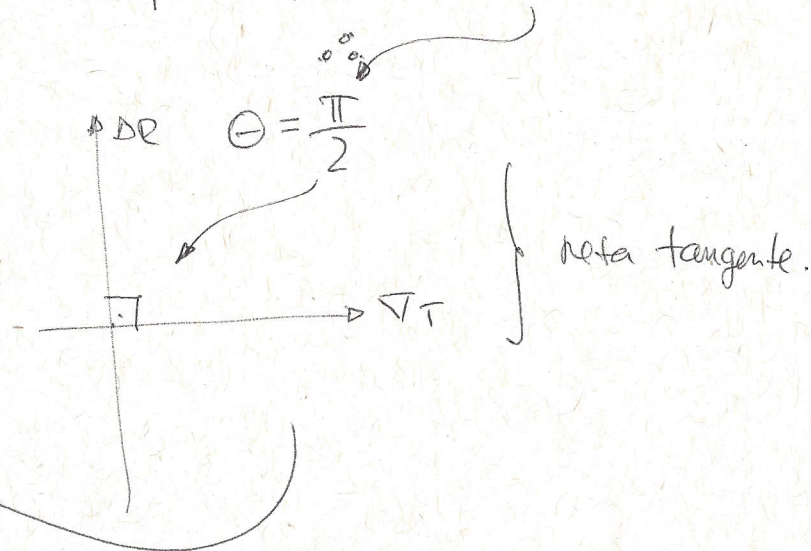 ∴
ΔR θ = π/2
∇T
reta tangente.